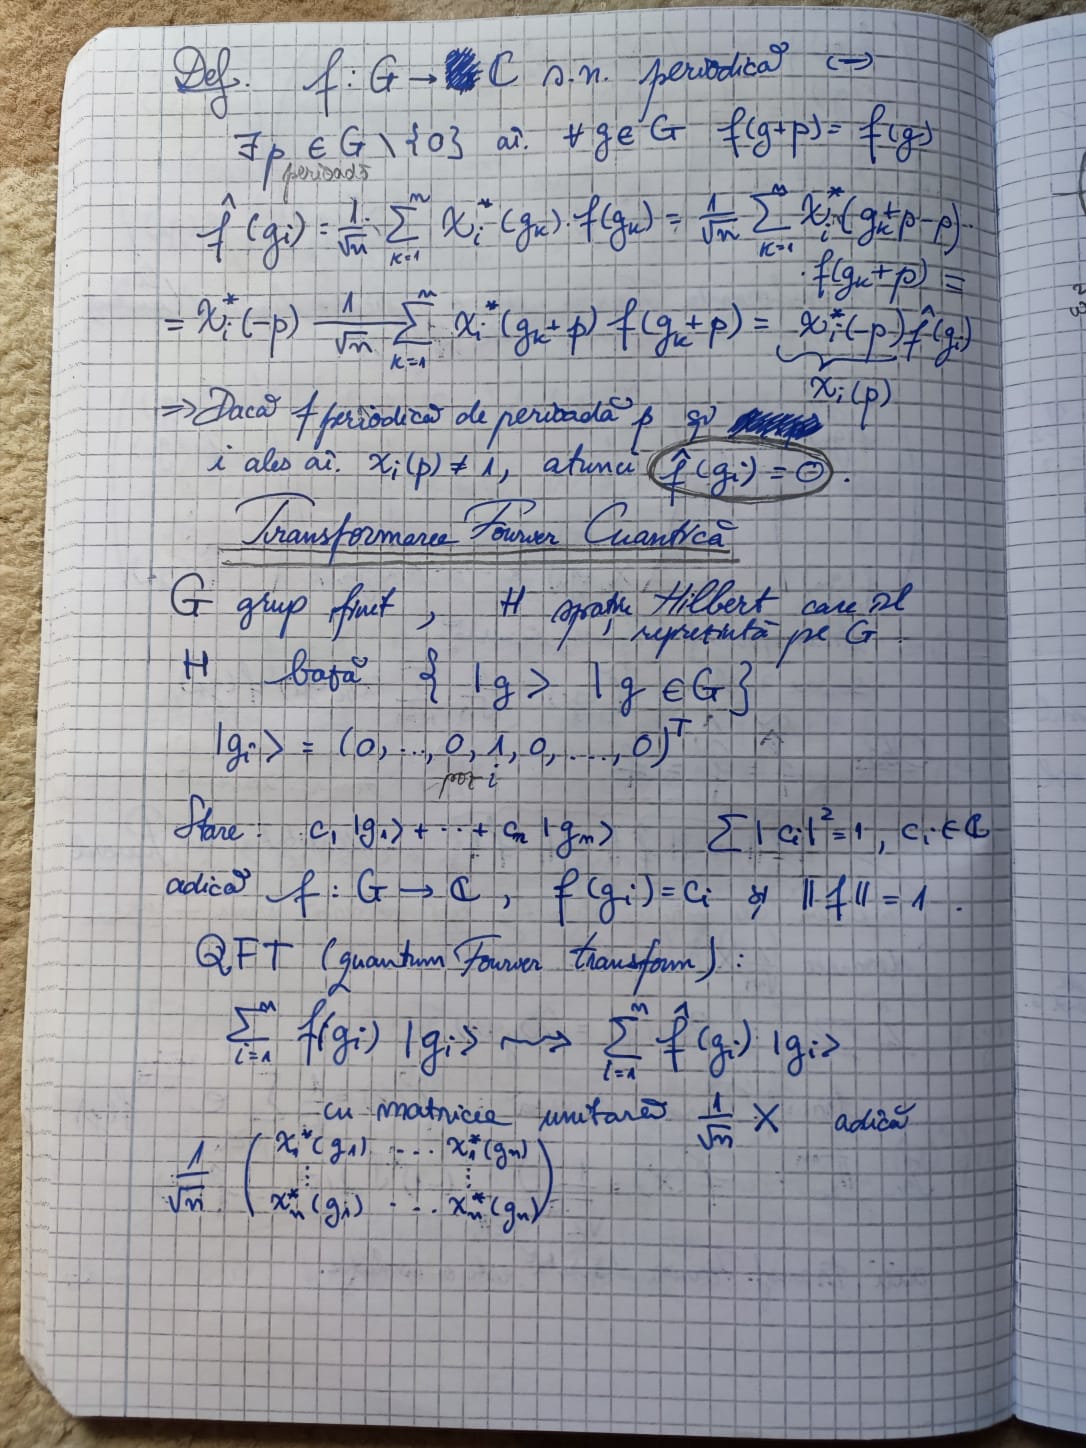 Def. f : G → ℂ s.n. periodică ↔
∃ p ∈ G \ {0} aî. ∀ g ∈ G f(g+p) = f(g)
perioadă
f̂ (gi) = 1/√n · ∑_{k=1}^{n} χi*(gk) · f(gk) = 1/√n ∑_{k=1}^{n} χi*(gk+p-p)·
· f(gk+p) =
= χi*(-p) 1/√n ∑_{k=1}^{n} χi*(gk+p) f(gk+p) = χi*(-p) f̂(gi)
χi(p)
⇒ Dacă f periodică de perioadă p și
i ales aî. χi(p) ≠ 1, atunci f̂(gi) = 0.
Transformarea Fourier Cuantică
G grup finit, H spațiu Hilbert care îl
reprezintă pe G.
H bază { |g> | g ∈ G}
|gi> = (0, ..., 0, 1, 0, ..., 0)^T
poz i
Stare: c1 |g1> + ··· + cn |gn> ∑ |ci|² = 1, ci ∈ ℂ
adică f : G → ℂ, f(gi) = ci și ||f|| = 1.
QFT (quantum Fourier transform):
∑_{i=1}^{n} f(gi) |gi> ⇝ ∑_{i=1}^{n} f̂(gi) |gi>
cu matricea unitară 1/√n X adică
1/√n ( χ1*(g1) ... χ1*(gn)
⋮ ⋮
χn*(g1) ... χn*(gn) )